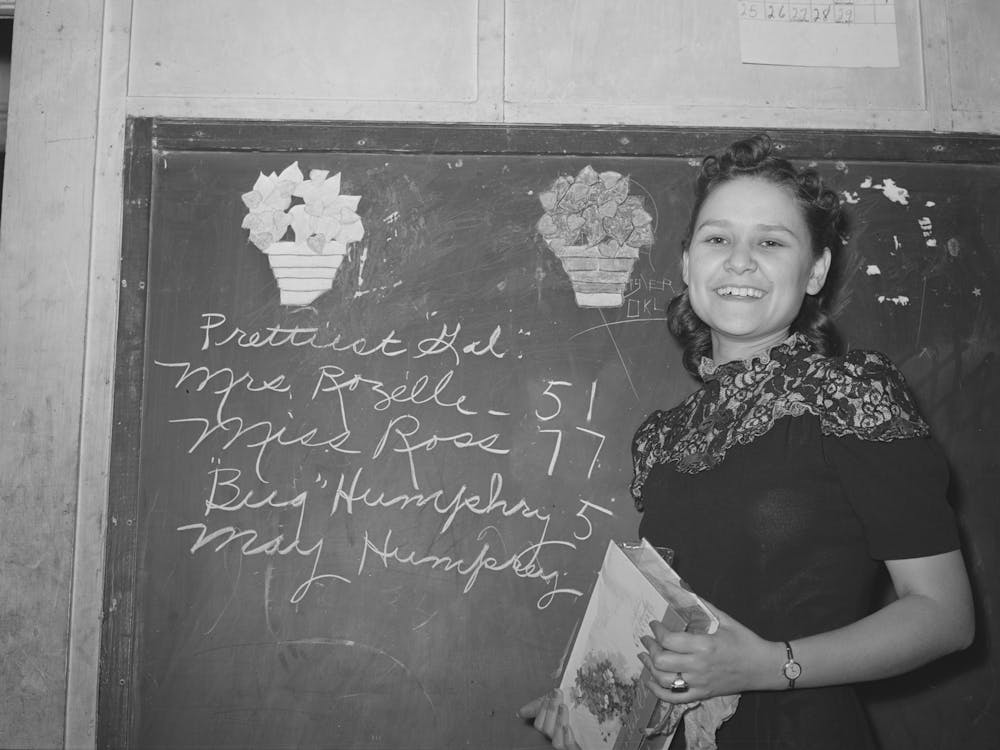 25 26 27 28 29
TYLER
OKL
Prettiest "Gal":
Mrs. Rozelle - 51
Miss Ross 77
"Bug" Humphry 5
May Humphrey